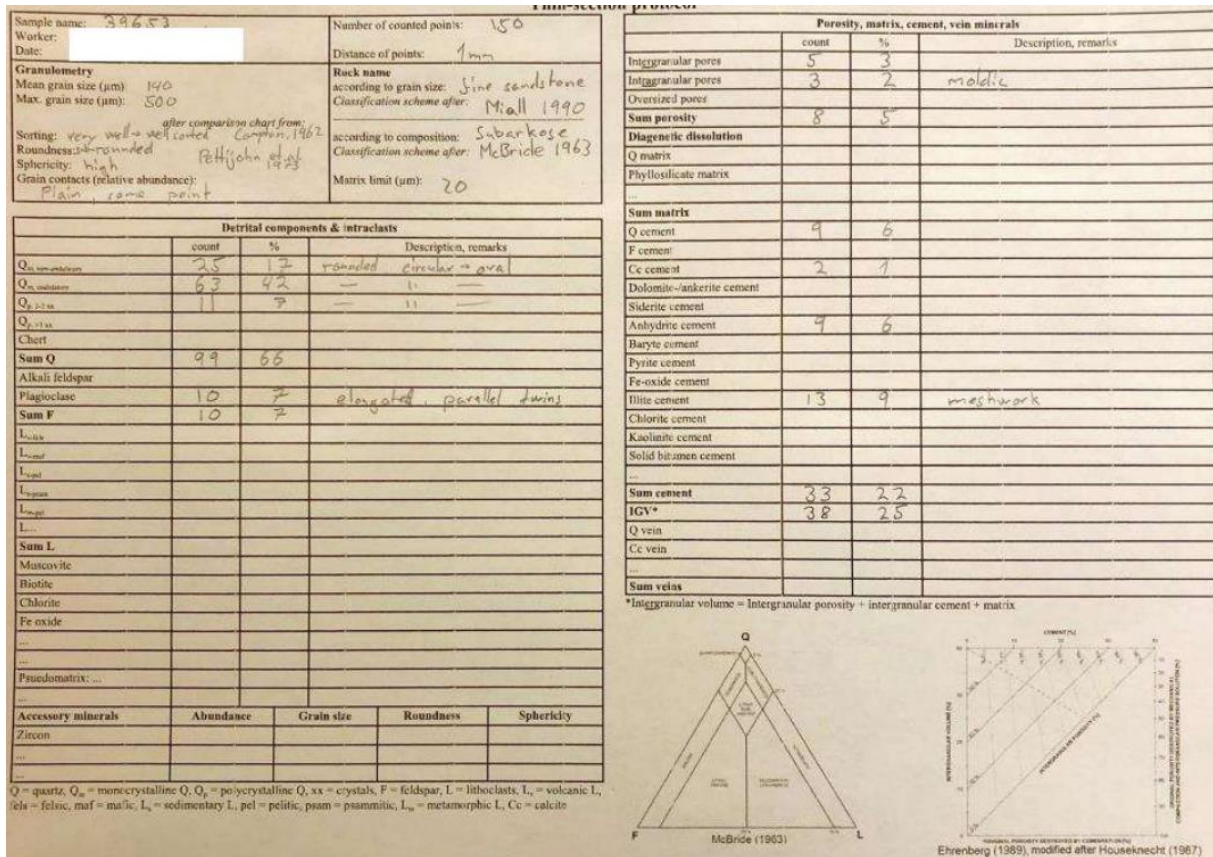 Thin-section protocol
Sample name: 39653
Worker:
Date:
Number of counted points: 150
Distance of points: 1mm
Granulometry
Mean grain size (µm): 140
Max. grain size (µm): 500
after comparison chart from:
Sorting: very well → well sorted Compton, 1962
Roundness: sub-rounded Pettijohn et al 1973
Sphericity: high
Grain contacts (relative abundance):
Plain, some point
Rock name
according to grain size: fine sandstone
Classification scheme after: Miall 1990
according to composition: Subarkose
Classification scheme after: McBride 1963
Matrix limit (µm): 20
Detrital components & intraclasts
count % Description, remarks
Qm, non-undulatory 25 17 rounded circular → oval
Qm, undulatory 63 42 — 11 —
Qp, 2-3 xx 11 7 — 11 —
Qp, >3 xx
Chert
Sum Q 99 66
Alkali feldspar
Plagioclase 10 7 elongated, parallel twins
Sum F 10 7
Lv-fels
Lv-maf
Ls-pel
Ls-psam
Lm-pel
L...
Sum L
Muscovite
Biotite
Chlorite
Fe oxide
...
...
Psuedomatrix: ...
...
Accessory minerals Abundance Grain size Roundness Sphericity
Zircon
...
...
Q = quartz, Qm = monocrystalline Q, Qp = polycrystalline Q, xx = crystals, F = feldspar, L = lithoclasts, Lv = volcanic L,
fels = felsic, maf = mafic, Ls = sedimentary L, pel = pelitic, psam = psammitic, Lm = metamorphic L, Cc = calcite
Porosity, matrix, cement, vein minerals
count % Description, remarks
Intergranular pores 5 3
Intragranular pores 3 2 moldic
Oversized pores
Sum porosity 8 5
Diagenetic dissolution
Q matrix
Phyllosilicate matrix
...
Sum matrix
Q cement 9 6
F cement
Cc cement 2 1
Dolomite-/ankerite cement
Siderite cement
Anhydrite cement 9 6
Baryte cement
Pyrite cement
Fe-oxide cement
Illite cement 13 9 meshwork
Chlorite cement
Kaolinite cement
Solid bitumen cement
...
Sum cement 33 22
IGV* 38 25
Q vein
Cc vein
...
Sum veins
*Intergranular volume = Intergranular porosity + intergranular cement + matrix
Q
F
L
McBride (1963)
CEMENT [%]
INTERGRANULAR VOLUME [%]
INTERGRANULAR POROSITY [%]
ORIGINAL POROSITY DESTROYED BY CEMENTATION [%]
Ehrenberg (1989), modified after Houseknecht (1987)